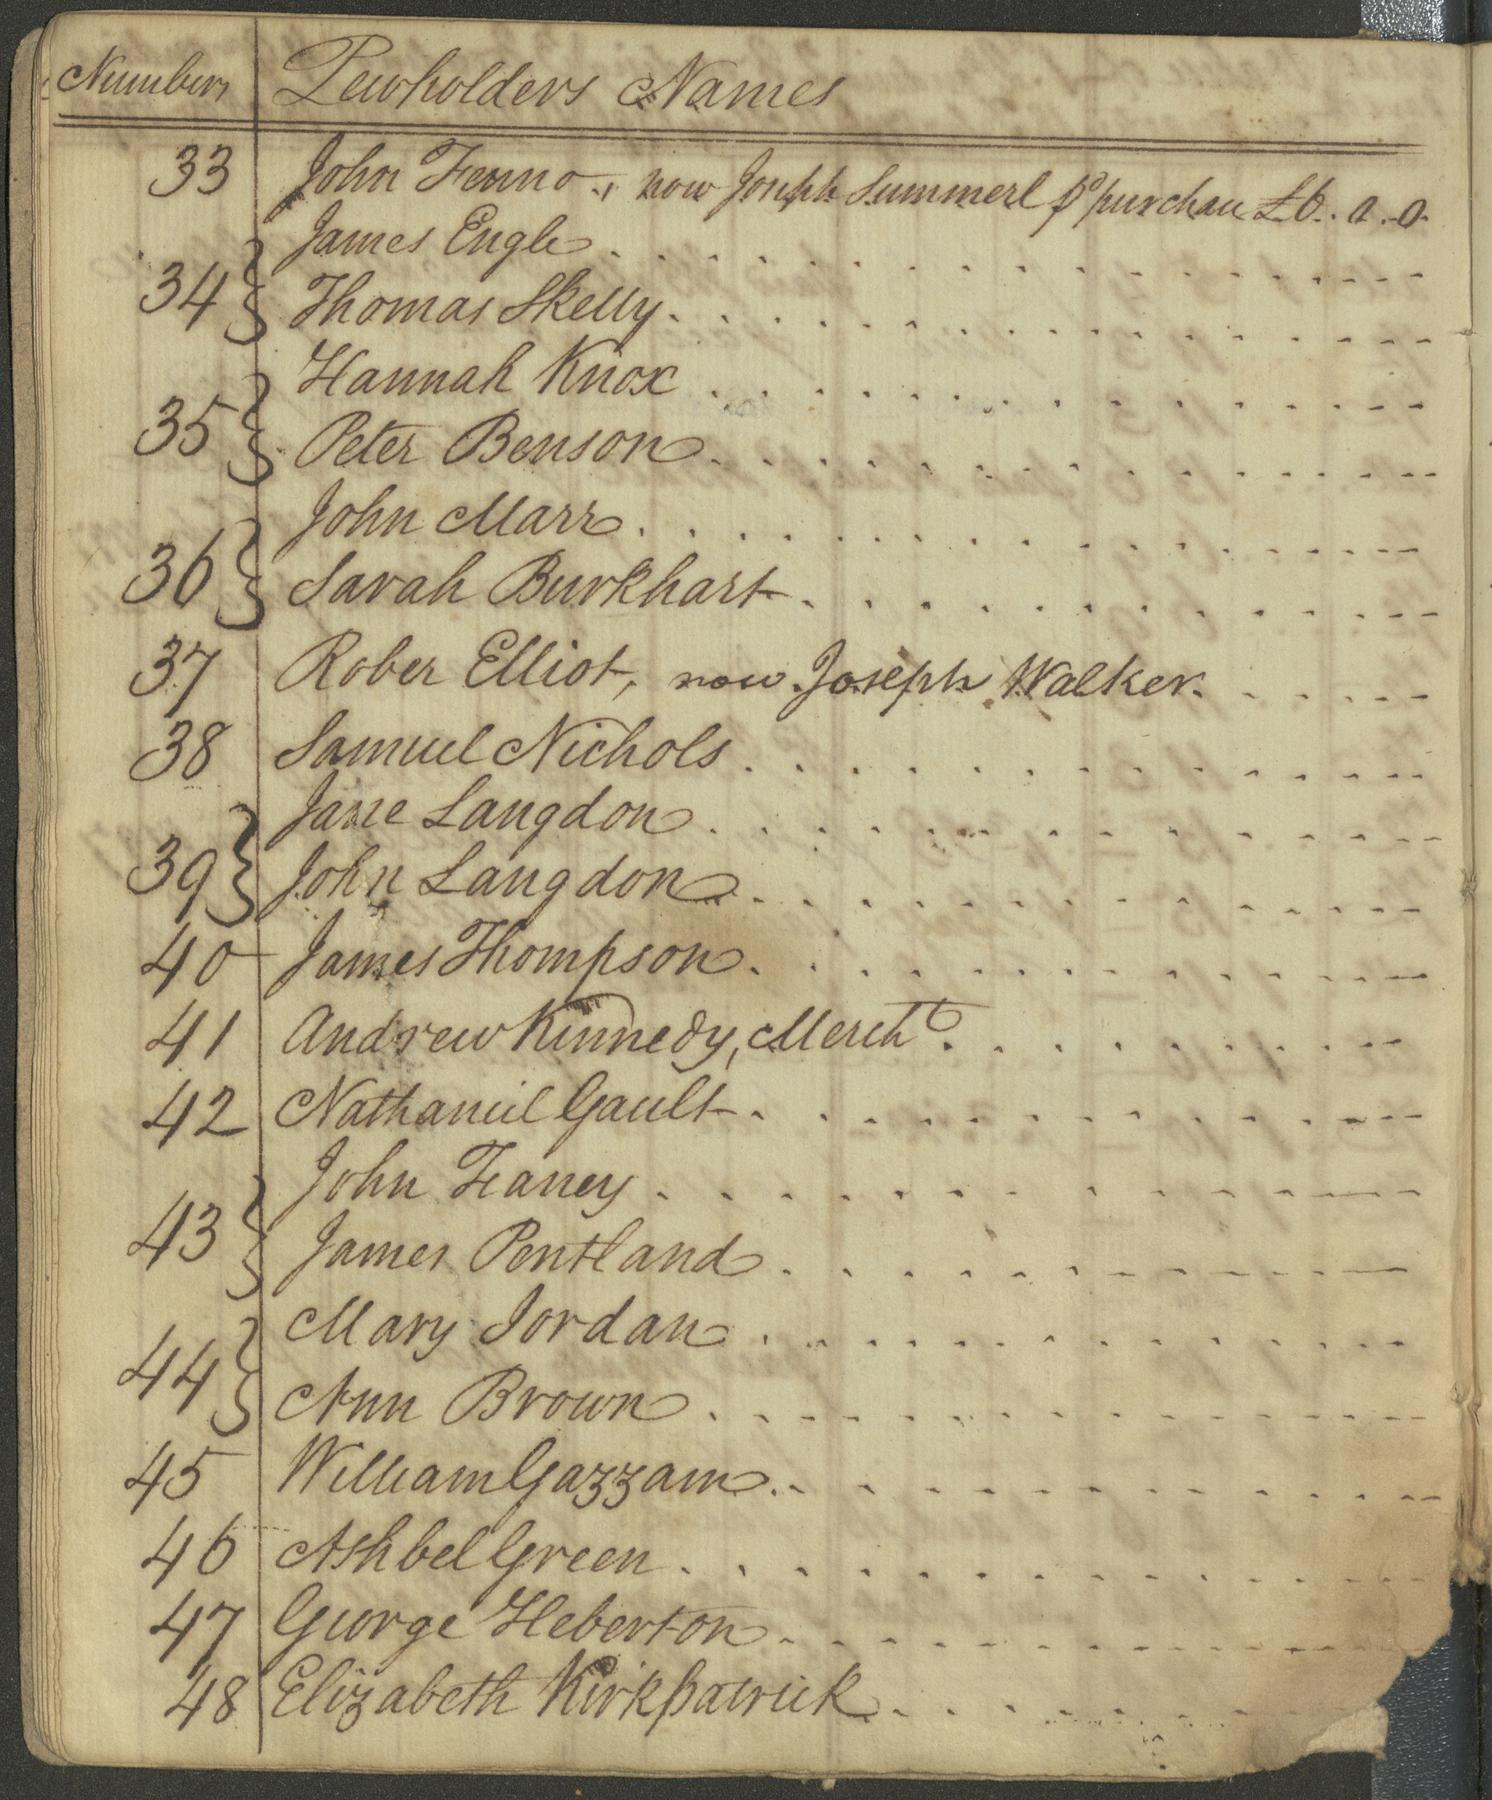 Numbers Pewholders Names
33 John Fenno., now Joseph Summerl purchase £6..0..0
James Engle
34 Thomas Skelly
Hannah Knox
35 Peter Benson
John Marr
36 Sarah Burkhart
37 Rober Elliot, now Joseph Walker.
38 Samuel Nichols
Jane Langdon
39 John Langdon
40 James Thompson
41 Andrew Kennedy, Mercht.
42 Nathaniel Gault
John Feaney
43 James Pentland
Mary Jordan
44 Ann Brown
45 William Gazzam
46 Ashbel Green
47 George Heberton
48 Elizabeth Kirkpatrick